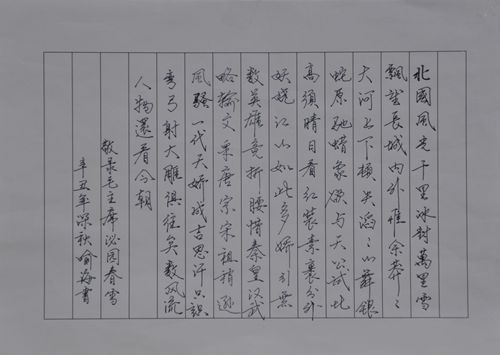 北國風光千里冰封萬里雪
飄望長城內外惟余莽〻
大河上下頓失滔〻山舞銀
蛇原馳蜡象欲与天公試比
高須晴日看紅裝素裹分外
妖嬈江山如此多嬌引無
數英雄競折腰惜秦皇漢武
略輸文采唐宗宋祖稍遜
風騷一代天驕成吉思汗只識
彎弓射大雕俱往矣數風流
人物還看今朝
敬录毛主席沁园春雪
辛丑年深秋喻海書